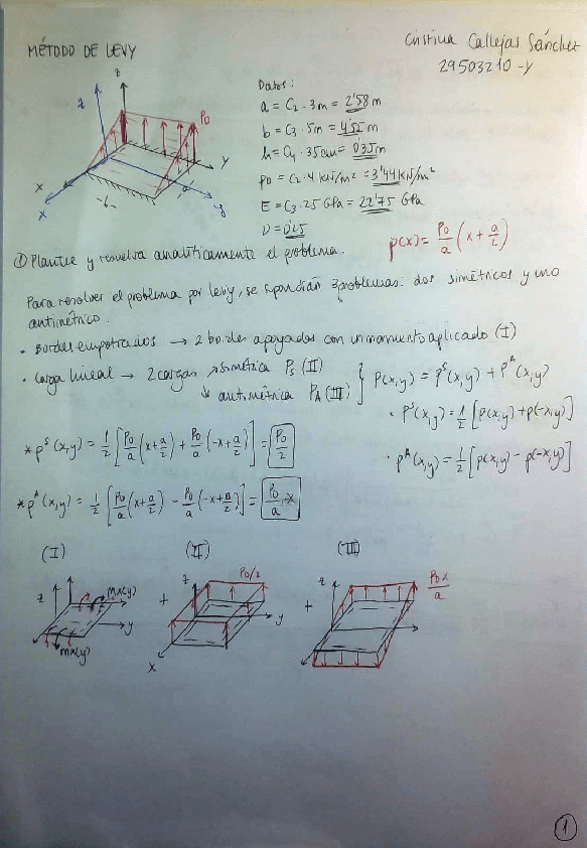 MÉTODO DE LEVY
Cristina Callejas Sánchez
29503210-Y
Datos:
a = C₂ · 3m = 2'58 m
b = C₃ · 5m = 4'55 m
h = C₄ · 35cm = 0'35 m
p₀ = C₂ · 4 kN/m² = 3'44 kN/m²
E = C₃ · 25 GPa = 22'75 GPa
ν = 0'25
z
z
P₀
y
y
x
x
-b-
a
① Plantee y resuelva analíticamente el problema.
p(x) = P₀/a (x + a/2)
Para resolver el problema por levy, se 3 problemas: dos simétricos y uno
antimétrico.
· Bordes empotrados → 2 bordes apoyados con un momento aplicado (I)
· Carga lineal → 2 cargas ↗ simétrica Ps (II)
↘ antimétrica PA (III)
} P(x,y) = pˢ(x,y) + pᴬ(x,y)
· pˢ(x,y) = 1/2 [p(x,y) + p(-x,y)]
* pˢ(x,y) = 1/2 [P₀/a (x + a/2) + P₀/a (-x + a/2)] = P₀/2
· pᴬ(x,y) = 1/2 [p(x,y) - p(-x,y)]
* pᴬ(x,y) = 1/2 [P₀/a (x + a/2) - P₀/a (-x + a/2)] = P₀/a · x
(I) (II) (III)
z
mx(y)
y
mx(y)
+
z
P₀/2
y
x
+
z
P₀x/a
1